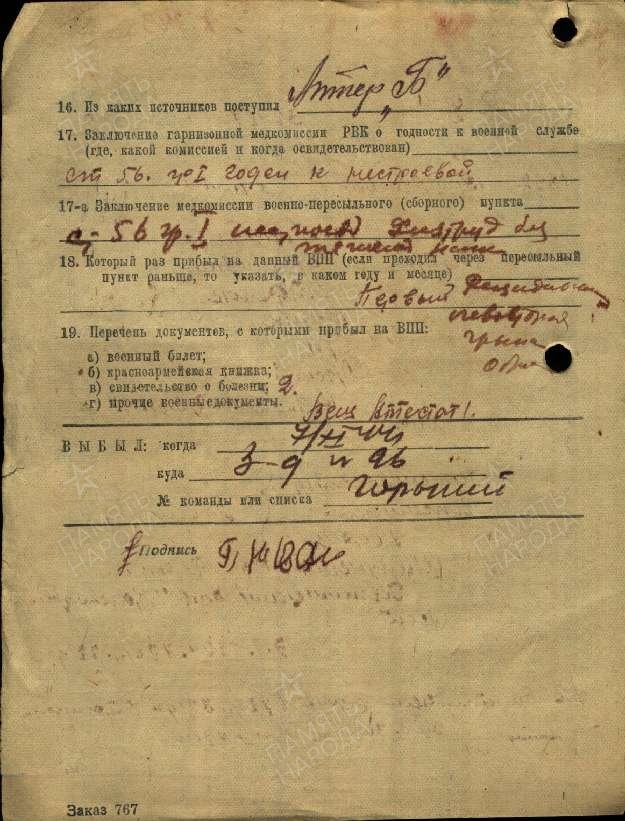 16. Из каких источников поступил Литер „Б"
17. Заключение гарнизонной медкомиссии РВК о годности к военной службе
(где, какой комиссией и когда освидетельствован)
ст 5б. гр I годен к нестроевой
17-а Заключение медкомиссии военно-пересыльного (сборного) пункта
ст 5б гр. I физ труд без
18. Который раз прибыл на данный ВПП (если проходил через пересыльный
пункт раньше, то указать, в каком году и месяце)
Первый
грыжа
19. Перечень документов, с которыми прибыл на ВПП:
а) военный билет;
б) красноармейская книжка;
в) свидетельство о болезни; 2.
г) прочие военные документы. Вещ Аттестат 1.
ВЫБЫЛ: когда 7/XI 44
куда З-д № 96
№ команды или списка Горький
Подпись
Заказ 767
ПАМЯТЬ НАРОДА